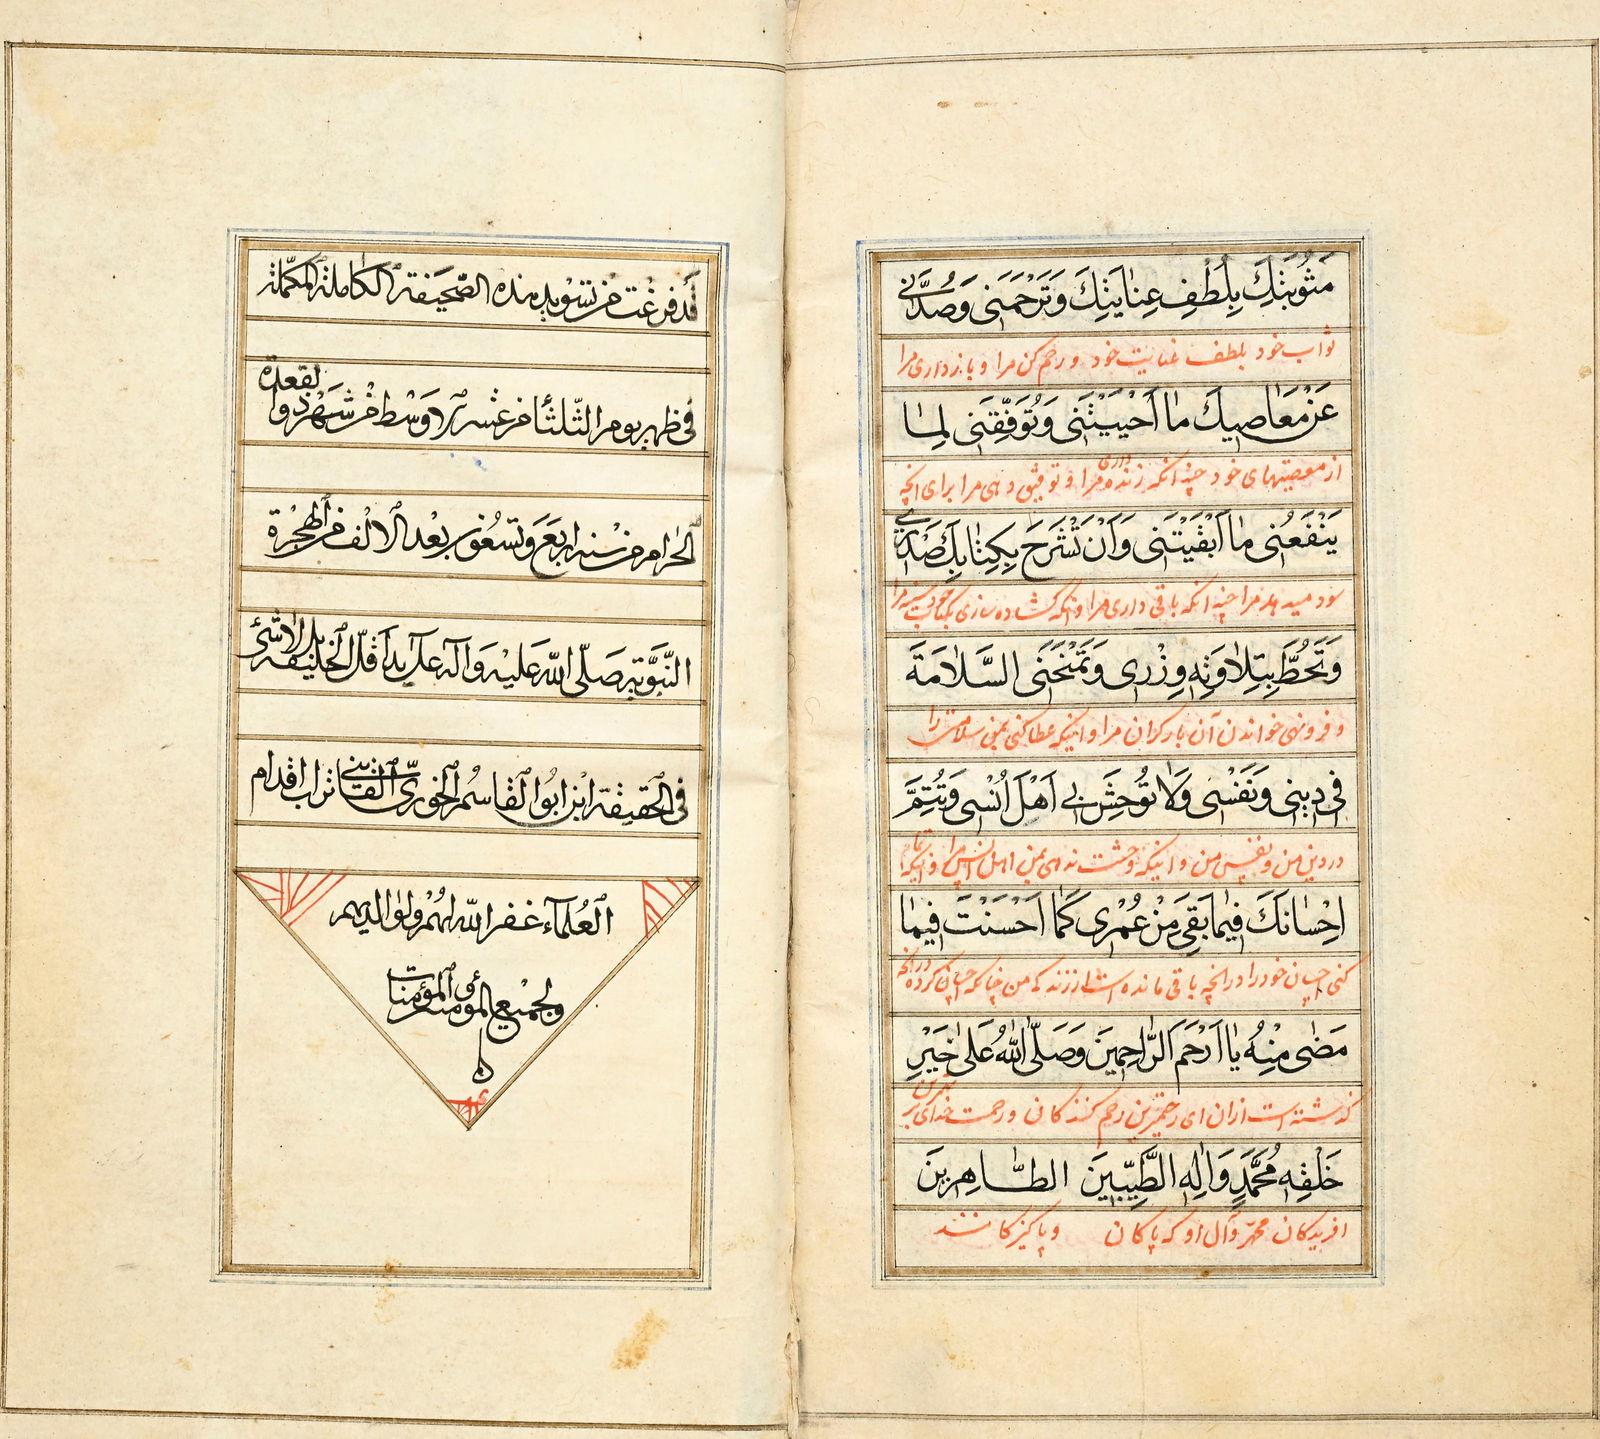 مَثُوبَتِكَ بِلُطْفِ عِنايَتِكَ وَتَرْحَمَنى وَصُدَّنى
ثواب خود بلطف عنايت خود و رحم كن مرا و باز دارى مرا
عَنْ مَعَاصِيكَ مٰا اَحْيَيْتَنى وَتُوَفِّقَنى لِمٰا
از معصيتهاى خود چندانكه زنده دارى مرا و توفيق دهى مرا براى آنچه
يَنْفَعُنى مٰا اَبْقَيْتَنى وَاَنْ تَشْرَحَ بِكِتٰابِكَ صَدْرى
سود ميدهد مرا چندانكه باقى دارى مرا و آنكه گشاده سازى بكتاب خود سينه مرا
وَتَحُطَّ بِتِلاٰوَتِهِ وِزْرى وَتَمْنَحَنَى السَّلاٰمَةَ
و فرو نهى خواندن آن بار گران مرا و اينكه عطا كنى بمن سلامت را
فى دينى وَنَفْسى وَلاٰ تُوحِشَ بى اَهْلَ اُنْسى وَتُتِمَّ
در دين من و نفس من و اينكه وحشت ندهى بمن اهل انس مرا و اينكه تمام
اِحْسٰانَكَ فيمٰا بَقِىَ مِنْ عُمْرى كَمٰا اَحْسَنْتَ فيمٰا
كنى احسان خود را در آنچه باقى مانده است از زندگى من چنانكه احسان كرده در آنچه
مَضٰى مِنْهُ يٰا اَرْحَمَ الرّٰاحِمينَ وَصَلَّى اللّٰهُ عَلى خَيْرِ
گذشته است از آن اى رحيمترين رحم كنندگان و رحمت خداى بر بهترين
خَلْقِهِ مُحَمَّدٍ وَاٰلِهِ الطَّيِّبينَ الطّٰاهِرينَ
آفريدگان محمد و آل او كه پاكان و پاكيزگانند
قَد فرغت من تسويد هذه الصَّحيفة الكاملة المكمّلة
فى ظهر يوم الثّلثا من عشر الاوسط من شهر ذوالقعدة
الحرام من سنه اربع وتسعون بعد الالف من الهجرة
النّبويّة صلّى اللّه عليه وآله على يد اقلّ الخليفة بل لا شئ
فى الحقيقة ابن ابوالقاسم الخورى القاينى تراب اقدام
العُلمآء غفر اللّه لهم ولوالديهم
ولجميع المؤمنين والمؤمنات